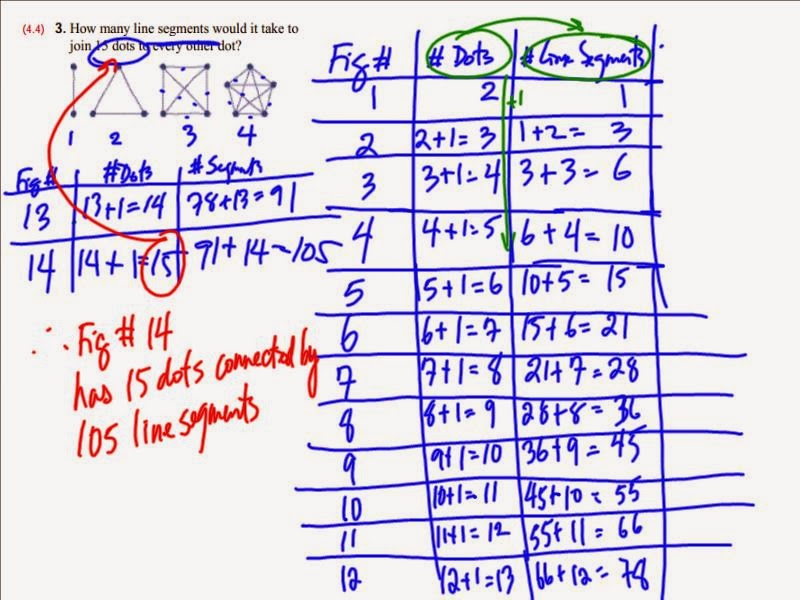 (4.4) 3. How many line segments would it take to
join 15 dots to every other dot?
1 2 3 4
Fig # #Dots # Segments
13 13+1=14 78+13=91
14 14+1=15 91+14=105
∴ Fig # 14
has 15 dots connected by
105 line segments
Fig # # Dots # Line Segments
1 2 +1 1
2 2+1=3 1+2=3
3 3+1=4 3+3=6
4 4+1=5 6+4=10
5 5+1=6 10+5=15
6 6+1=7 15+6=21
7 7+1=8 21+7=28
8 8+1=9 28+8=36
9 9+1=10 36+9=45
10 10+1=11 45+10=55
11 11+1=12 55+11=66
12 12+1=13 66+12=78